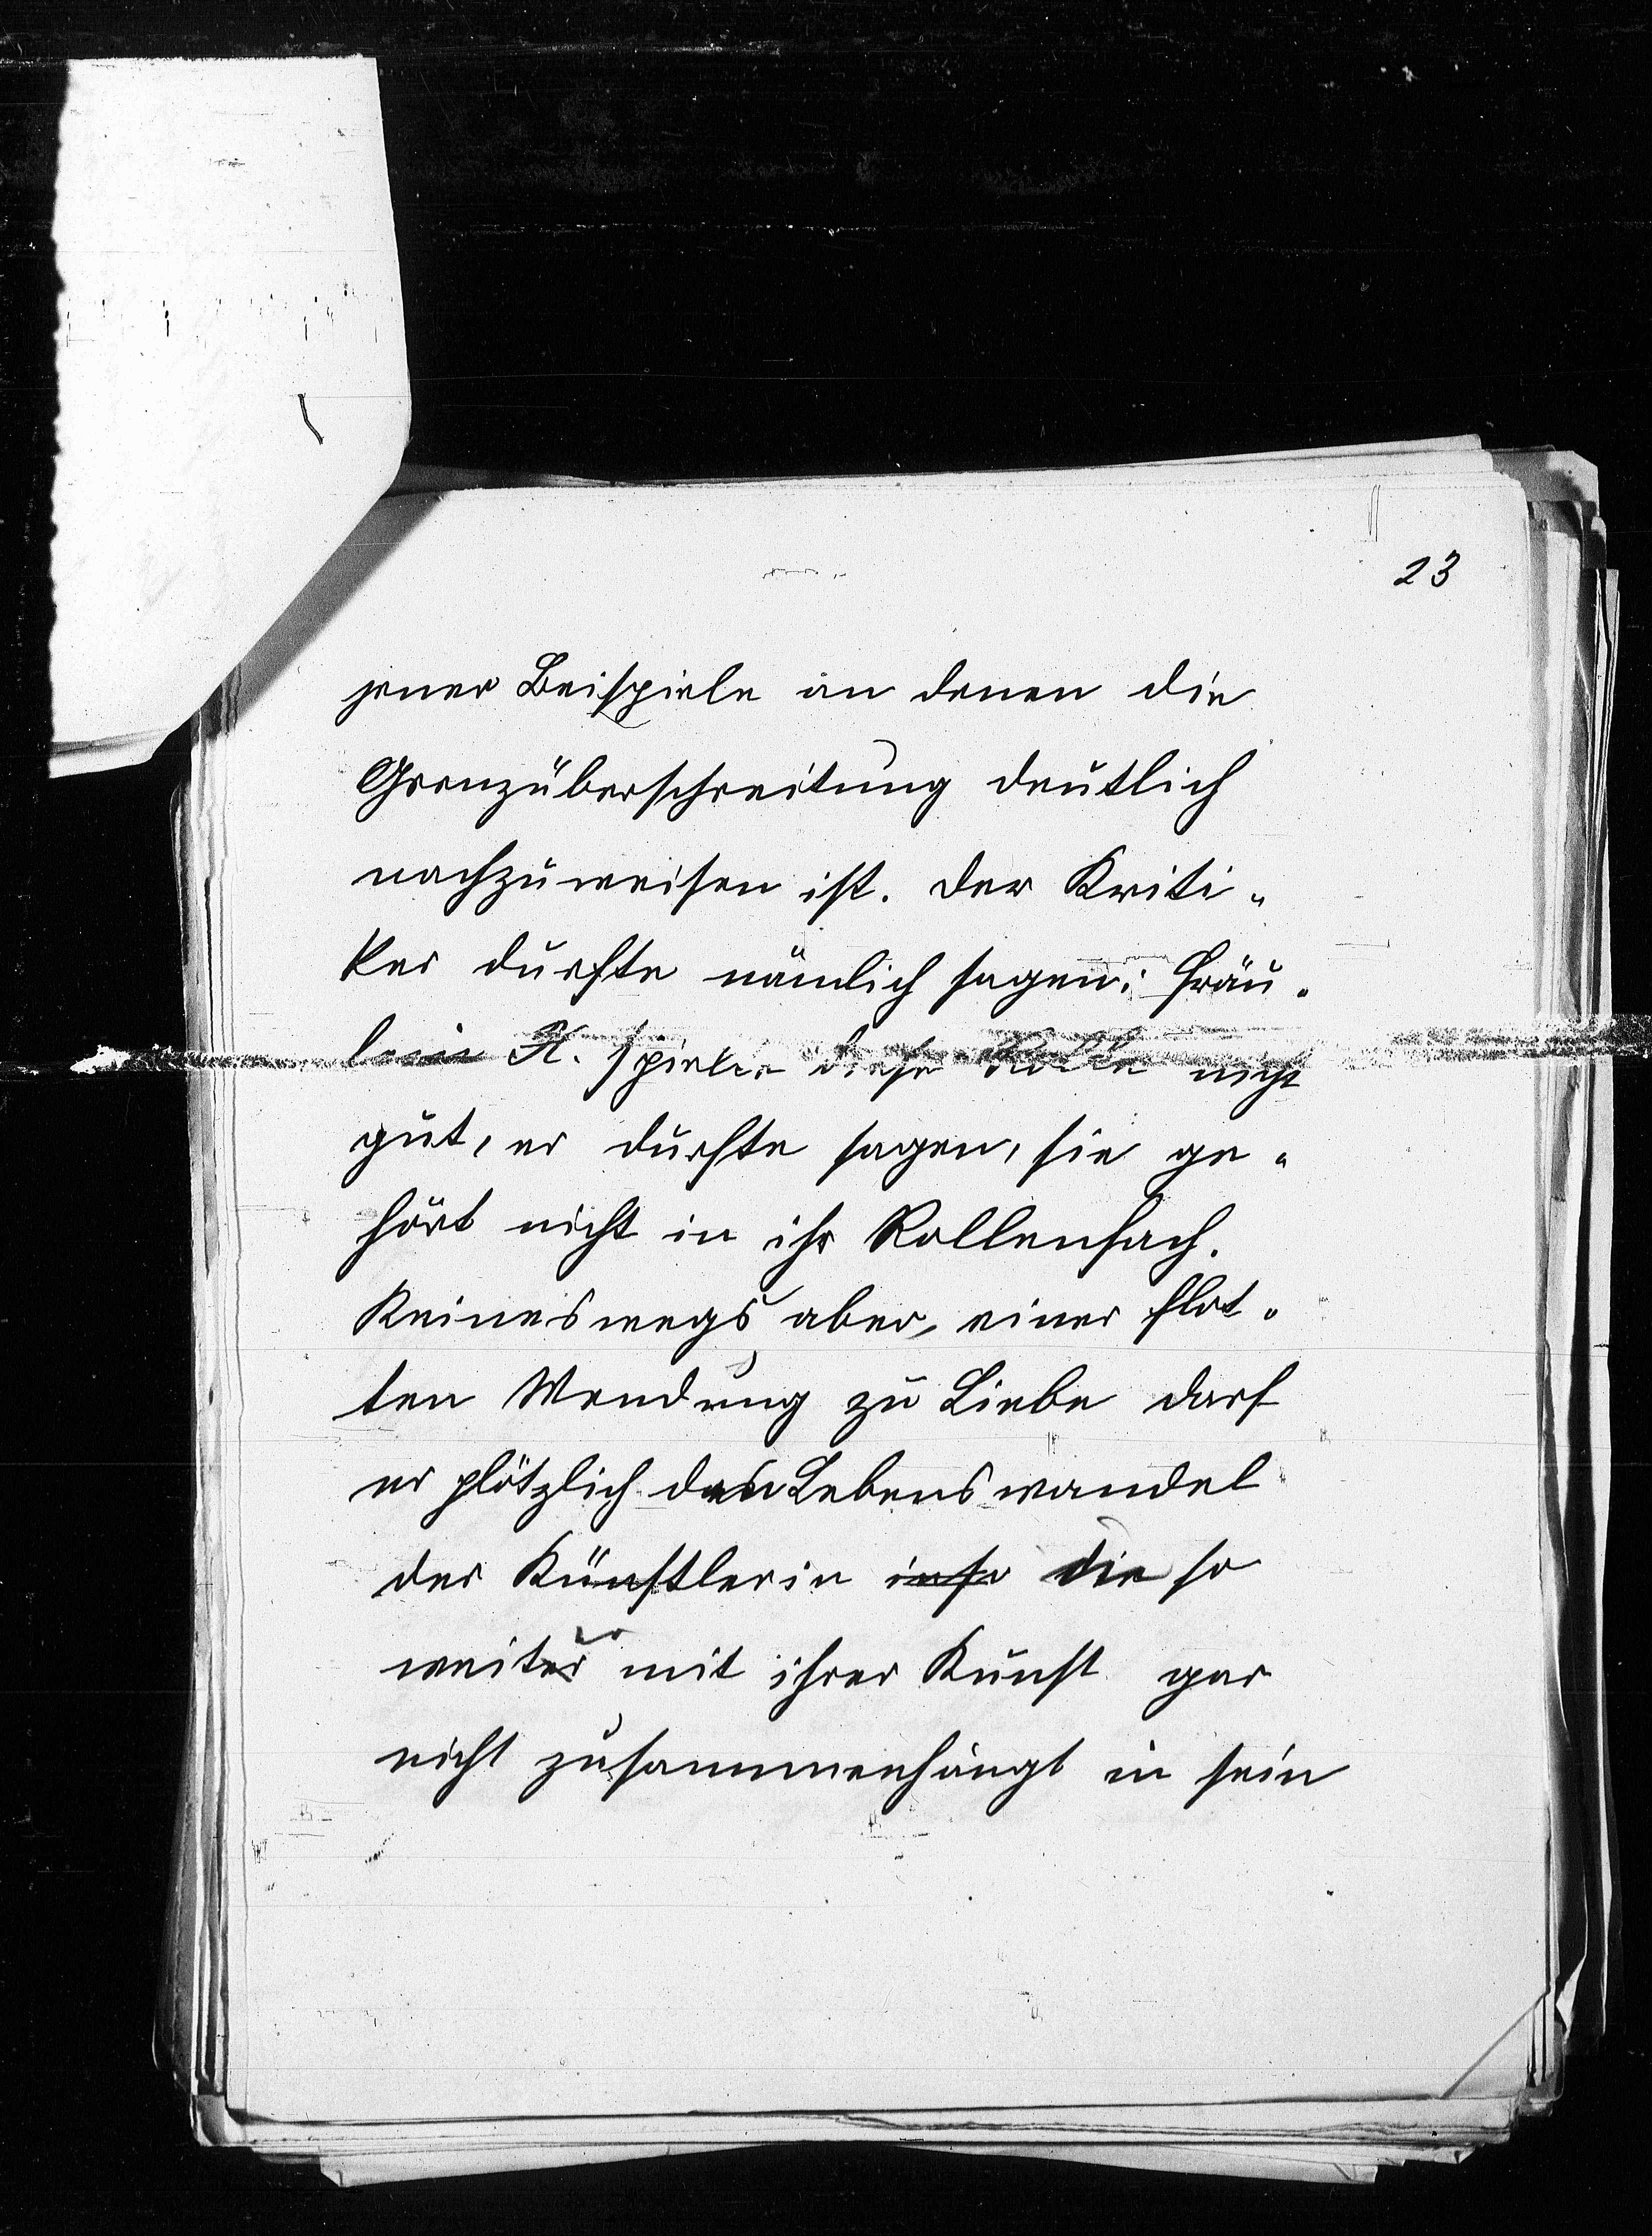 23
jener Beispiele an denen die
Grenzüberschreitung deutlich
nachzuweisen ist. Der Kriti-
ker durfte nämlich sagen: Fräu-
lein K. spielte diese Rolle nicht
gut, er durfte sagen, sie ge-
hört nicht in ihr Rollenfach.
Keineswegs aber, einer flot-
ten Wendung zu Liebe darf
er plötzlich den Lebenswandel
der Künstlerin die so
weit mit ihrer Kunst gar
nicht zusammenhängt in sein